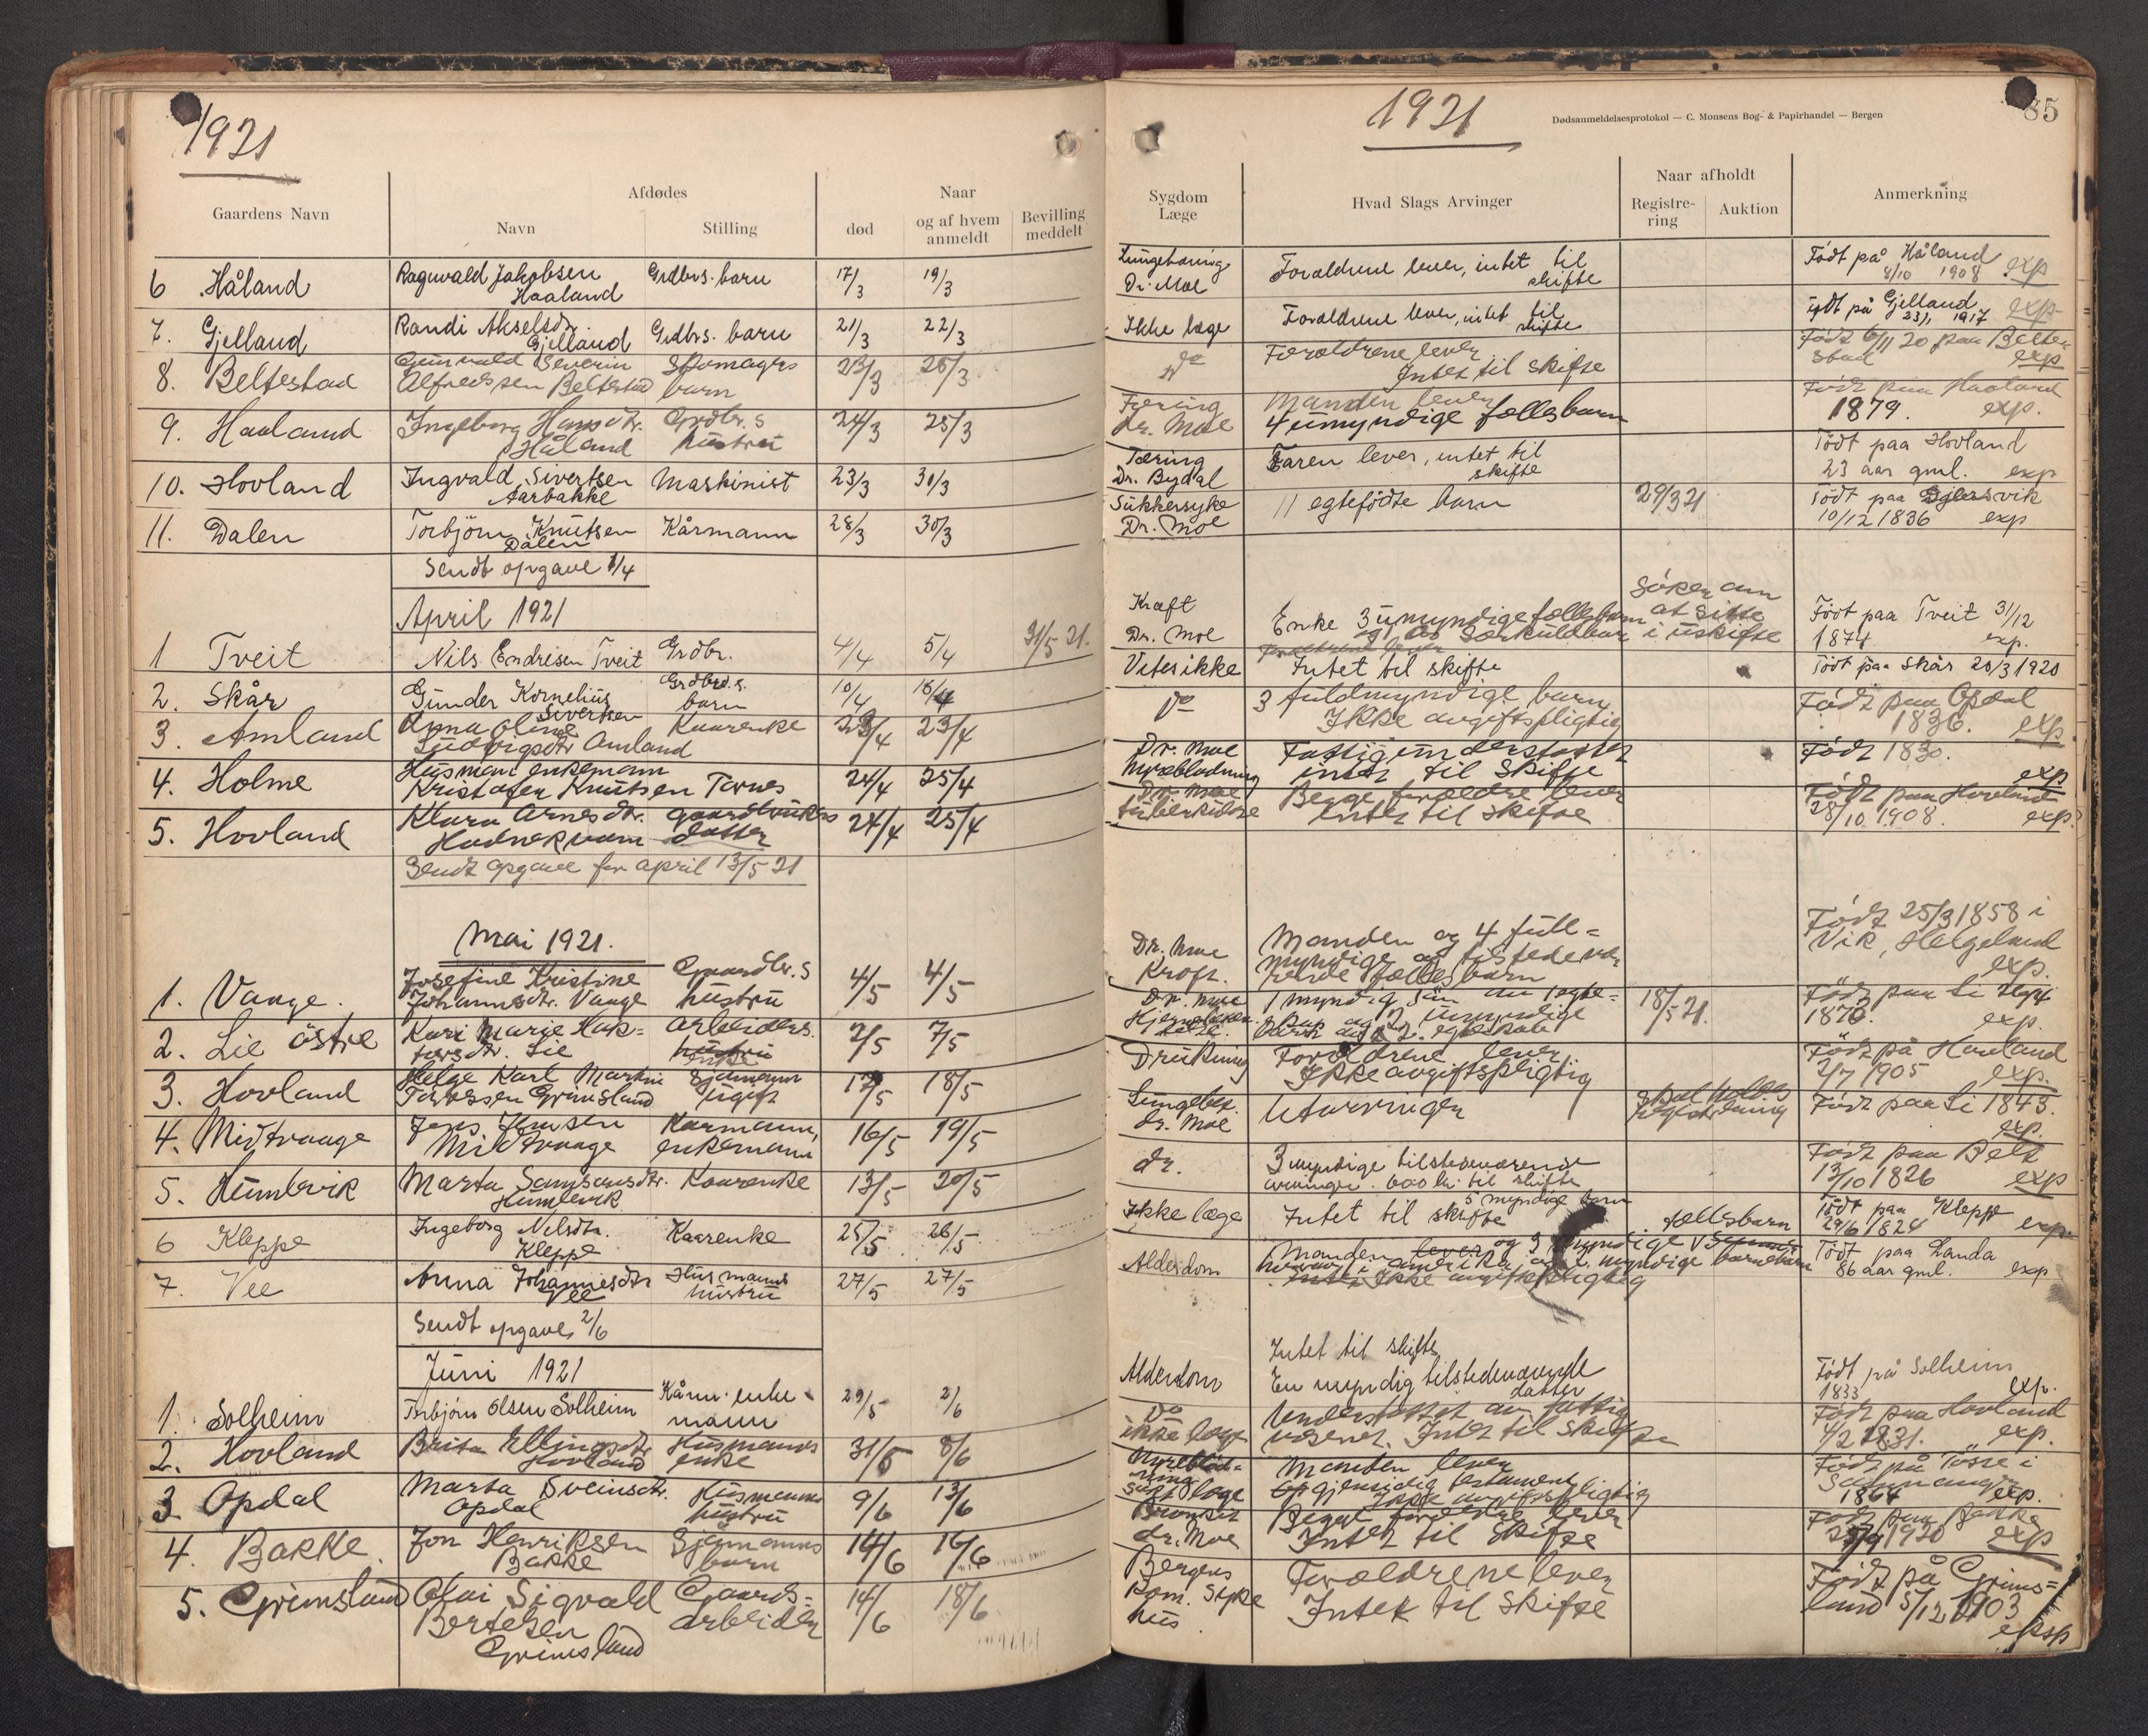 1921
Afdødes
Naar
Gaardens Navn
Navn
Stilling
død
og af hvem anmeldt
Bevilling meddelt
6 Håland
Ragnvald Jakobsen Haaland
Grdbrs. barn
17/3
19/3
7. Gjelland
Randi Akselsdr. Gjelland
Grdbrs. barn
21/3
22/3
8. Beltestad
Gunvald Severin
Alfredssen Beltestad
Skomagers barn
23/3
9. Haaland
Ingeborg Hansdr. Håland
Grdbr.s hustru
24/3
25/3
10. Hovland
Ingvald Sivertsen Aarbakke
Maskinist
23/3
30/3
11. Dalen
Torbjörn Knutsen Dalen
Kårmann
28/3
30/3
Sendt opgave 1/4
April 1921
1 Tveit
Nils Endresen Tveit
Grdbr.
4/4
5/4
31/5 21.
2. Skår
Gunder Kornelius Sivertsen
Grdbrs. barn
10/4
16/4
3. Amland
Anna Oline
Ludvigsdtr Amland
Kaarenke
23/4
4. Holme
Husmann enkemann
Kristofer Knutsen Tornes
24/4
25/4
5. Hovland
Klara Arnesdr.
Hodnekvam
gaardbrukers datter
24/4
25/4
Sendt opgave for april 13/5 21
Mai 1921.
1. Vange.
Josefine Kristine
Johannesdtr. Vange
Gaardbr.s hustru
4/5
4/5
2. Lie östre
Kari Marie Lie
arbeiders
7/5
3. Hovland
Helge Karl Martin
Grimsland
Sjömann ugift
17/5
18/5
4. Midtvaage
Jens Jensen
Midtvaage
Karmann, enkemann
16/5
19/5
5. Humlevik
Marta Samsonsdtr. Humlevik
Kaarenke
13/5
20/5
6 Kleppe
Ingeborg Nilsdtr. Kleppe
Kaarenke
25/5
26/5
7. Vee
Anna Johannesdtr Vee
Husmanns hustru
27/5
27/5
Sendt opgave 2/6
Juni 1921
1. Solheim
Torbjörn Olsen Solheim
Kårm. enkemann
29/5
2/6
2. Hovland
Brita Ellingsdtr Hovland
Husmanns enke
31/5
8/6
3 Opdal
Marta Sveinsdtr. Opdal
Husmanns hustru
9/6
13/6
4. Bakke
Jon Henriksen Bakke
Sjömanns barn
14/6
16/6
5. Grimsland
Olai Sigvald
Bertelsen
Grimsland
Gaards=
arbeider
14/6
18/6
1921
Dødsanmeldelsesprotokol — C. Monsens Bog- & Papirhandel — Bergen
85
Sygdom Læge
Hvad Slags Arvinger
Naar afholdt
Registrering
Auktion
Anmerkning
Dr. Moe
Forældrene lever, intet til skifte
Födt på Håland
8/10 1908 exp
Ikke læge
Forældrene lever, intet til skifte
Födt på Gjelland
23/1 1917 exp
do
Forældrene lever
Intet til skifte
Födt 6/11 20 paa Beltestad
exp
Tæring
Dr. Moe
Manden lever
4 umyndige fellesbarn
Födt paa Haaland
1879. exp.
Tæring
Dr. Bydal
Faren lever, intet til skifte
Födt paa Hovland
23 aar gml. exp
Sukkersyke
Dr. Moe
11 egtefödte barn
29/3 21
Födt paa Gjersvik
10/12 1836 exp
Kræft
Dr. Moe
Enke 3 umyndige fellesbarn
Söker om at sitte i uskifte
Födt paa Tveit 31/12
1874 exp.
Vites ikke
Forældrene lever
Intet til skifte
Födt paa Skår 20/3 1920
do
3 fuldmyndige barn
Ikke avgiftspligtig
Födt paa Opdal
1836. exp.
Dr. Moe
Fattigunderstöttet
intet til Skifte
Födt 1830.
exp
Dr. Moe
tuberkulose
Begge forældre lever
Intet til Skifte
Födt paa Hovland
28/10 1908. exp.
Dr. Moe
Kræft.
Manden og 4 full=
myndige og tilstedeværende fælles barn
Födt 25/3 1858 i
Vik, Helgeland
exp.
Dr. Moe
18/5 21.
exp.
Drukning
Forældrene lever
Ikke avgiftspligtig
Födt på Hovland
2/7 1905 exp.
Lungebet.
Dr. Moe
Utarvinger
Skal holdes registrering
Födt paa Li 1843.
exp.
do.
3 myndige tilstedeværende
arvinger. 600 kr. til skifte
Födt paa Belt
13/10 1826 exp
Ikke læge
Intet til skifte
5 myndige barn
Födt paa Kleppe
29/6 1824 exp.
Alderdom
Manden lever og 3 myndige fellesbarn
Ikke avgiftspligtig
Födt paa Landa
86 aar gml. exp
Alderdom
Intet til skifte
En myndig tilstedeværende datter
Födt på Solheim
1833 exp.
do
ikke læge
Understöttet av fattig
væsenet. Intet til Skifte
Födt paa Hovland
1/2 1831. exp.
Manden lever
gjensidig testament
Ikke avgiftspligtig
1864 exp.
Bronkit
dr. Moe
Begge forældre lever
Intet til Skifte
Födt paa Bakke
1920 exp
Bergens
Kom. Syke
hus
Forældrene lever
Intet til Skifte
Födt på Grims=
land 5/12 1903
eksp